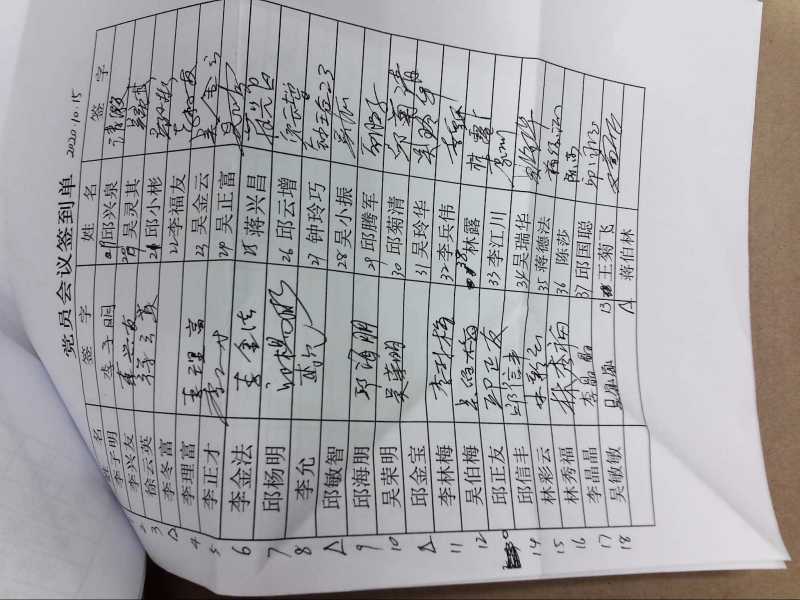 党员会议签到单 2020.10.15
姓名 签字 姓名 签字
1 李子明 李子明 19 邱兴泉
2 李兴友 李兴友 20 吴灵其
3 徐云英 徐云英 21 邱小彬
△ 李冬富 22 李福友
4 李理富 李理富 23 吴金云 吴金云
5 李正才 24 吴正富
6 李金法 李金法 25 蒋兴昌
7 邱杨明 邱杨明 26 邱云增
8 李允 27 钟玲巧 钟玲巧
△ 邱敏智 28 吴小振
9 邱海朋 邱海朋 29 邱腾军
10 吴荣明 吴荣明 30 邱菊清 邱菊清
△ 邱金宝 31 吴玲华 吴玲华
11 李林梅 李林梅 32 李兵伟
12 吴伯梅 吴伯梅 林露 林露
邱正友 邱正友 33 李江川
14 邱信丰 邱信丰 34 吴瑞华
15 林彩云 林彩云 35 蒋德法
16 林秀福 林秀福 36 陈莎
17 李晶晶 李晶晶 37 邱国聪
18 吴敏敏 13 王菊飞
△ 蒋伯林